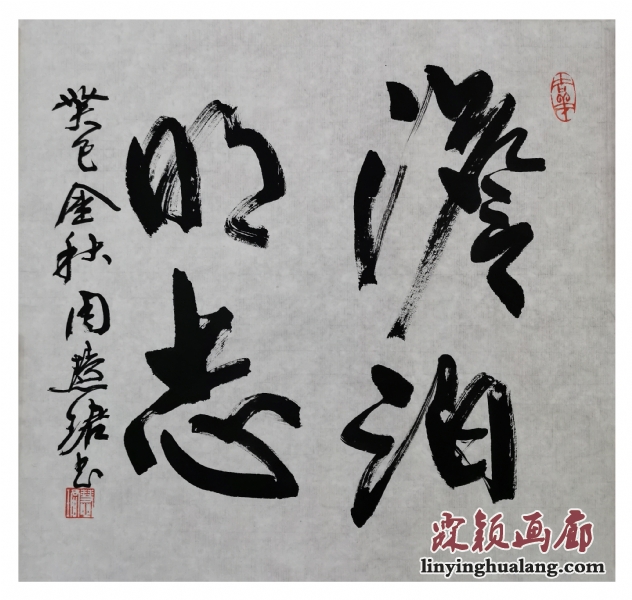 澹泊
明志
癸巳金秋周慧珺书
霖颖画廊
linyinghualang.com